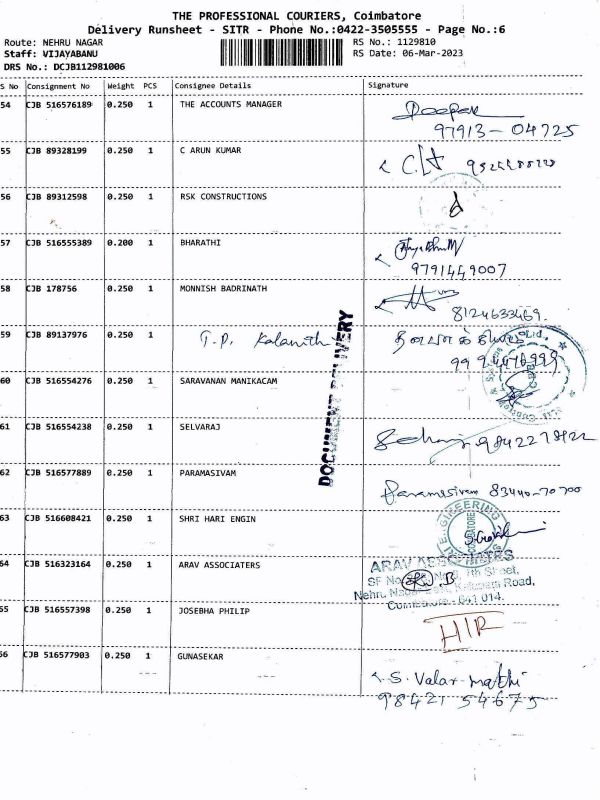 THE PROFESSIONAL COURIERS, Coimbatore
Delivery Runsheet - SITR - Phone No.:0422-3505555 - Page No.:6
Route: NEHRU NAGAR RS No.: 1129810
Staff: VIJAYABANU RS Date: 06-Mar-2023
DRS No.: DCJB112981006
S No Consignment No Weight PCS Consignee Details Signature
54 CJB 516576189 0.250 1 THE ACCOUNTS MANAGER Deepak
97913-04725
55 CJB 89328199 0.250 1 C ARUN KUMAR
56 CJB 89312598 0.250 1 RSK CONSTRUCTIONS
57 CJB 516555389 0.200 1 BHARATHI
9791449007
58 CJB 178756 0.250 1 MONNISH BADRINATH
8124633469.
59 CJB 89137976 0.250 1 T.P.
DOCUMENT DELIVERY
60 CJB 516554276 0.250 1 SARAVANAN MANIKACAM
61 CJB 516554238 0.250 1 SELVARAJ
62 CJB 516577889 0.250 1 PARAMASIVAM
Paramesivam 83440-70700
63 CJB 516608421 0.250 1 SHRI HARI ENGIN
64 CJB 516323164 0.250 1 ARAV ASSOCIATERS
ARAV ASSOCIATES
SF No 7th Street,
Nehru Road,
Coimbatore - 641 014.
65 CJB 516557398 0.250 1 JOSEBHA PHILIP
66 CJB 516577903 0.250 1 GUNASEKAR
S. Valar mathi
98421 54675